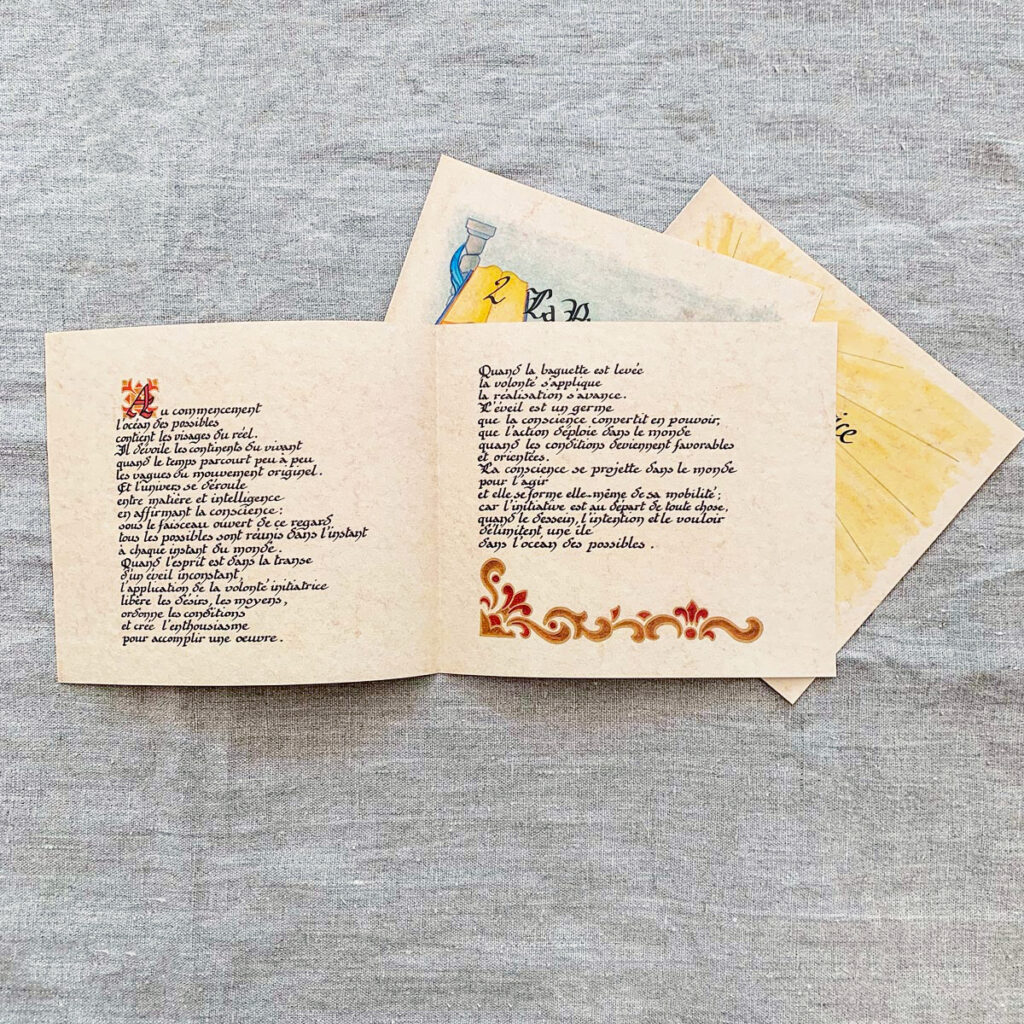 Au commencement
l'océan des possibles
contient les visages du réel.
Il dévoile les continents du vivant
quand le temps parcourt peu à peu
les vagues du mouvement originel.
Et l'univers se déroule
entre matière et intelligence
en affirmant la conscience :
sous le faisceau ouvert de ce regard
tous les possibles sont réunis dans l'instant
à chaque instant du monde.
Quand l'esprit est dans la transe
d'un éveil inconstant,
l'application de la volonté initiatrice
libère les désirs, les moyens,
ordonne les conditions
et crée l'enthousiasme
pour accomplir une oeuvre.
Quand la baguette est levée
la volonté s'applique
la réalisation s'avance.
L'éveil est un germe
que la conscience convertit en pouvoir,
que l'action déploie dans le monde
quand les conditions deviennent favorables
et orientées.
La conscience se projette dans le monde
pour l'agir
et elle se forme elle-même de sa mobilité ;
car l'initiative est au départ de toute chose,
quand le dessein, l'intention et le vouloir
délimitent une île
dans l'océan des possibles.
2 La